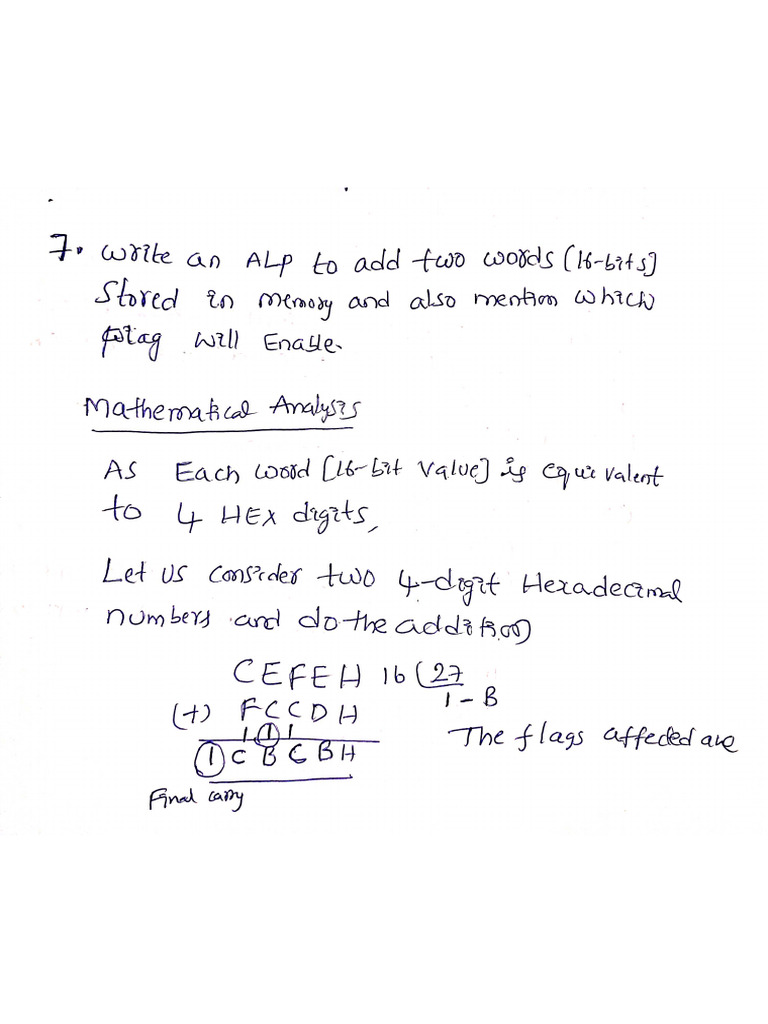 7. Write an ALP to add two words [16-bits]
Stored in memory and also mention which
flag will Enable.
Mathematical Analysis
As Each word [16-bit value] is equivalent
to 4 HEX digits,
Let us consider two 4-digit Hexadecimal
numbers and do the addition
CEFEH 16 (27
1 - B
(+) FCCDH
1 1 1
1 C B C B H
The flags affected are
Final carry